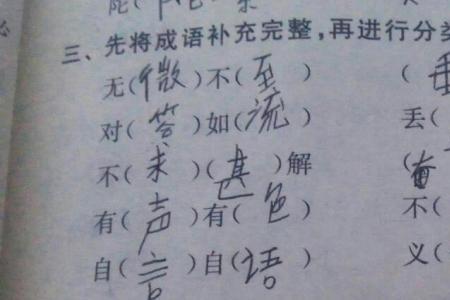 三、先将成语补充完整,再进行分类
无(微)不(至) (垂
对(答)如(流) 丢(
不(求)(甚)解 (
有(声)有(色) 不(
自(言)自(语) 义(